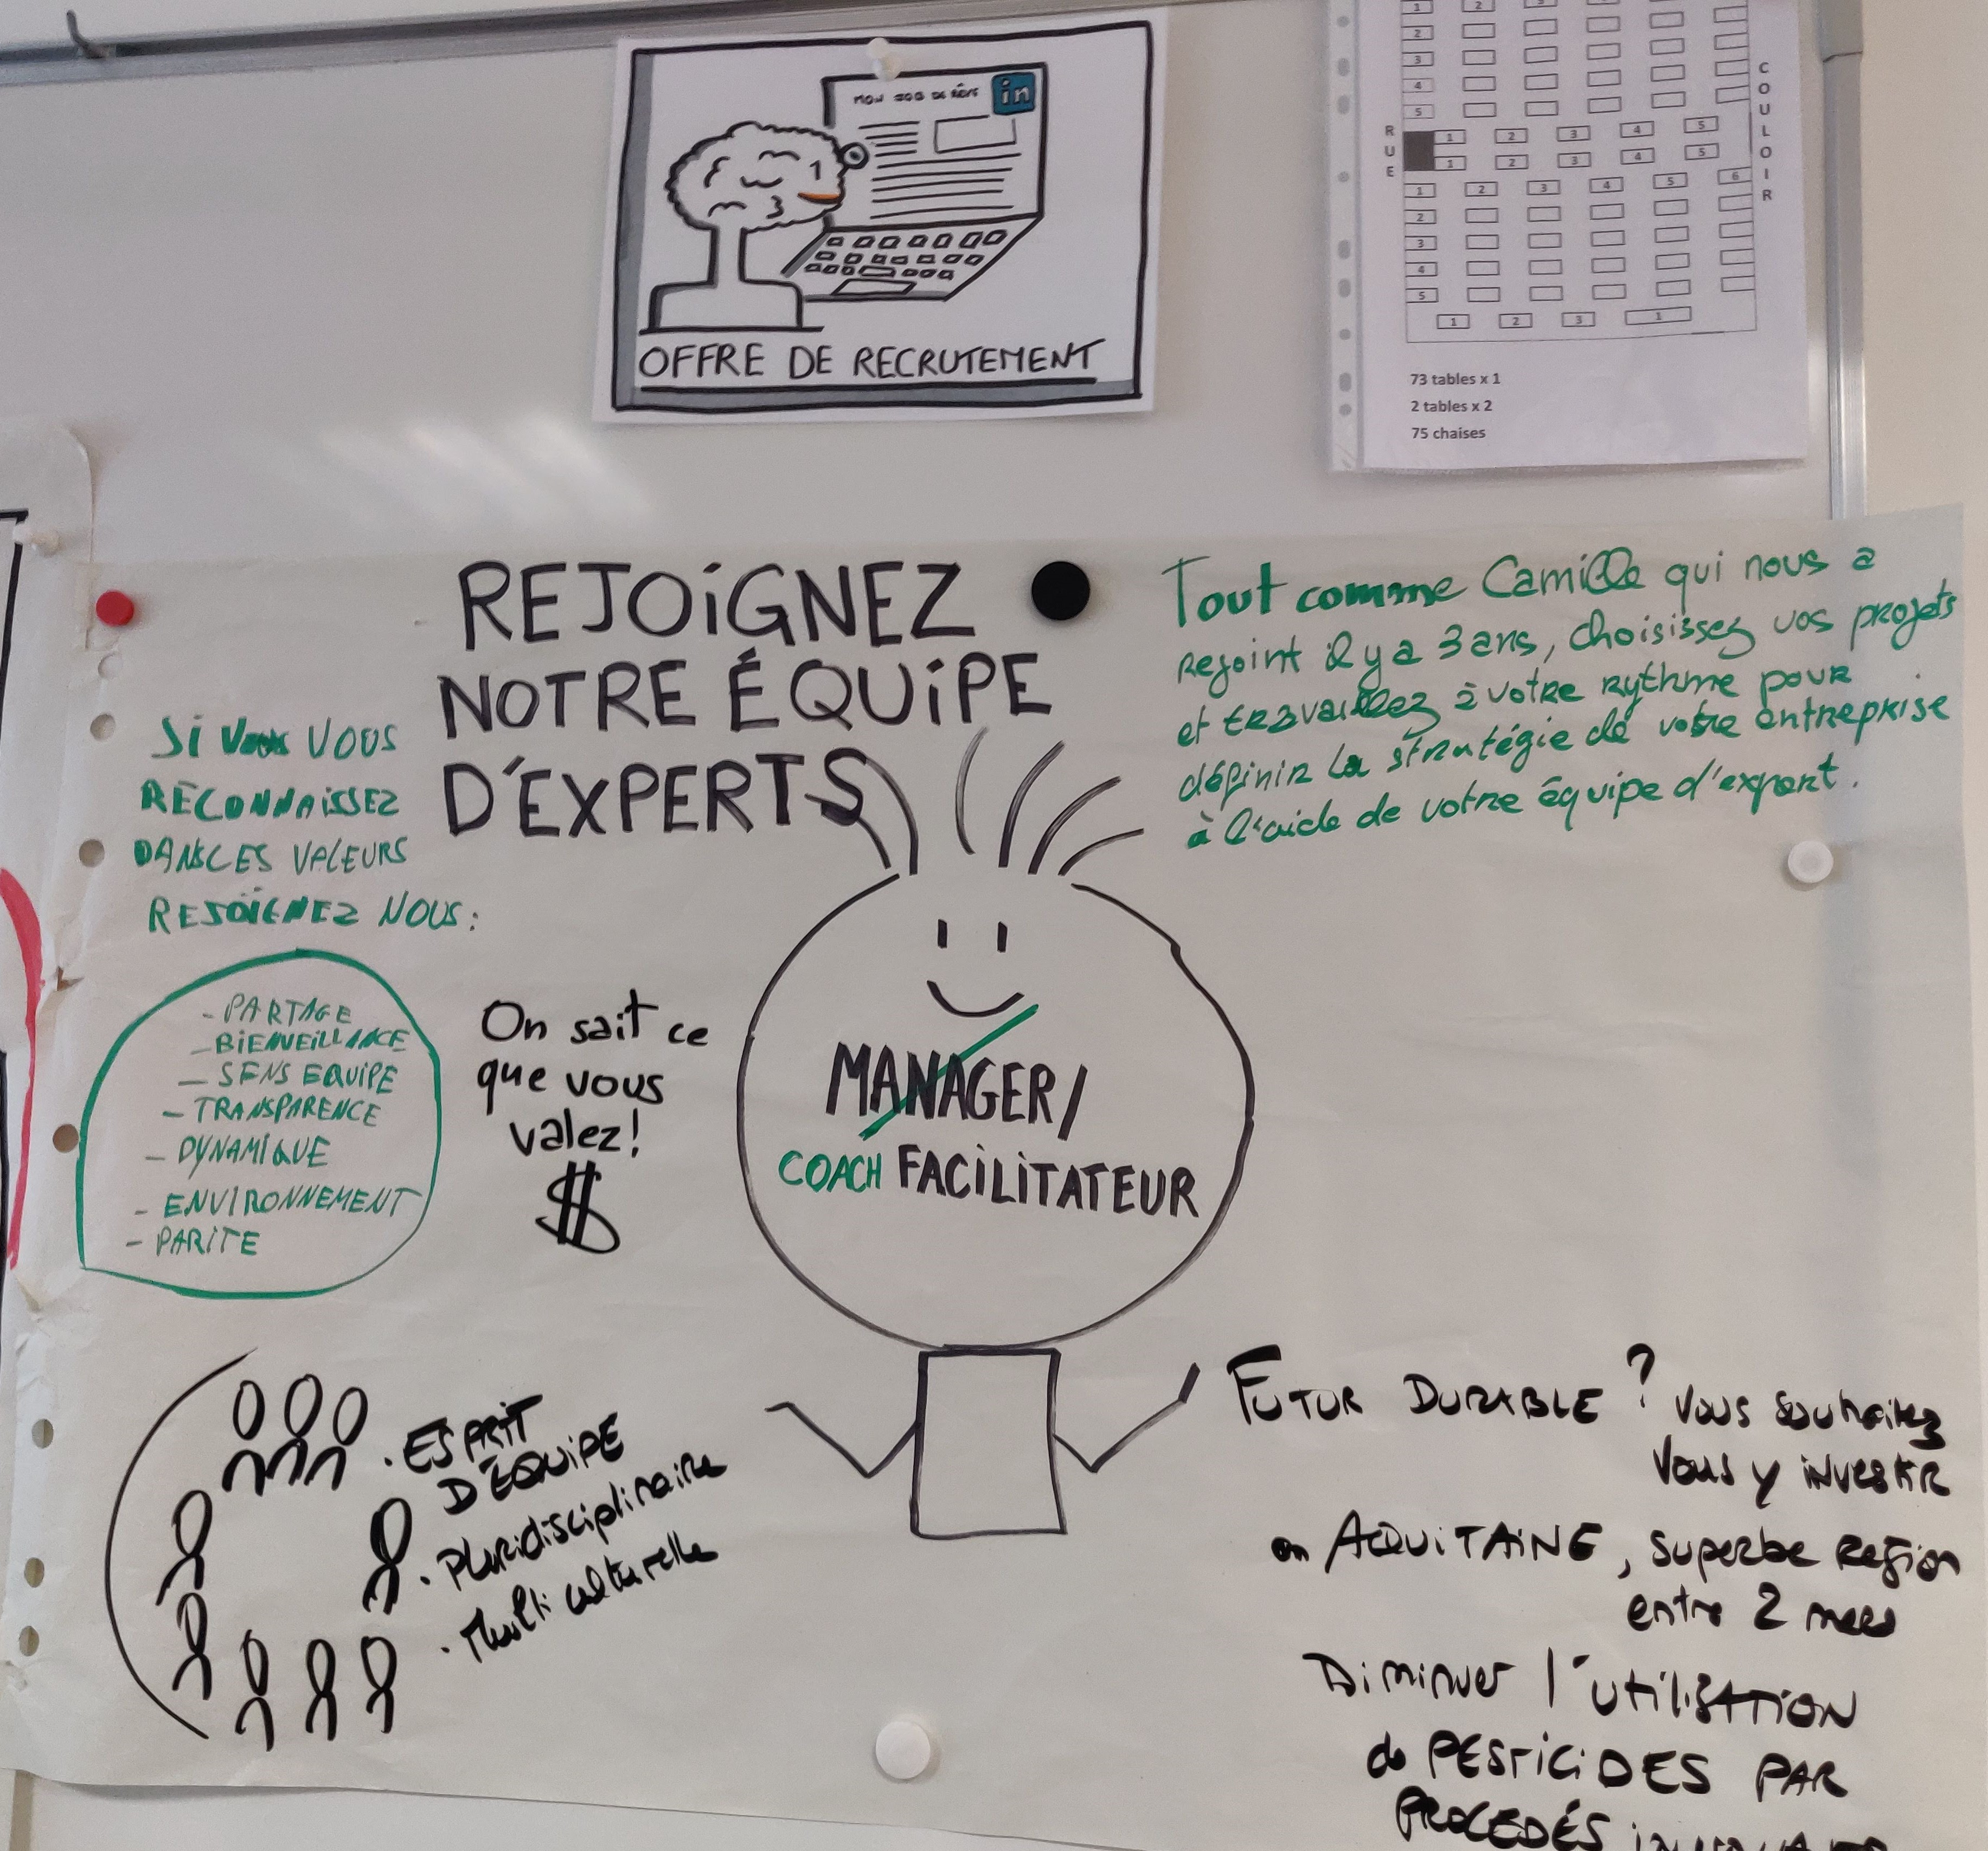 MON JOB DE RÊVE
in
OFFRE DE RECRUTEMENT
1 2 3
2
3
4
5
1 2 3 4 5
1 2 3 4 5
1 2 3 4 5 6
2
3
4
5
1 2 3 1
RUE
COULOIR
73 tables x 1
2 tables x 2
75 chaises
REJOiGNEZ
NOTRE ÉQUiPE
D'EXPERTS
Tout comme Camille qui nous a
rejoint il y a 3 ans, choisissez vos projets
et travaillez à votre rythme pour
définir la stratégie de votre entreprise
à l'aide de votre équipe d'expert.
Si VOUS
RECONNAiSSEZ
DANS CES VALEURS
REJOiGNEZ NOUS:
- PARTAGE
- BiENVEiLLANCE
- SENS EQUiPE
- TRANSPARENCE
- DYNAMiQUE
- ENViRONNEMENT
- PARiTE
On sait ce
que vous
valez!
$
MANAGER/
COACH FACiLiTATEUR
. ESPRiT
D'ÉQUiPE
. Pluridisciplinaire
. Multi culturelle
FUTUR DURABLE ? Vous souhaitez
Vous y investir
en AQUiTAiNE, superbe Region
entre 2 mers
Diminuer l'utilisation
de PESTiCiDES PAR
PROCEDÉS